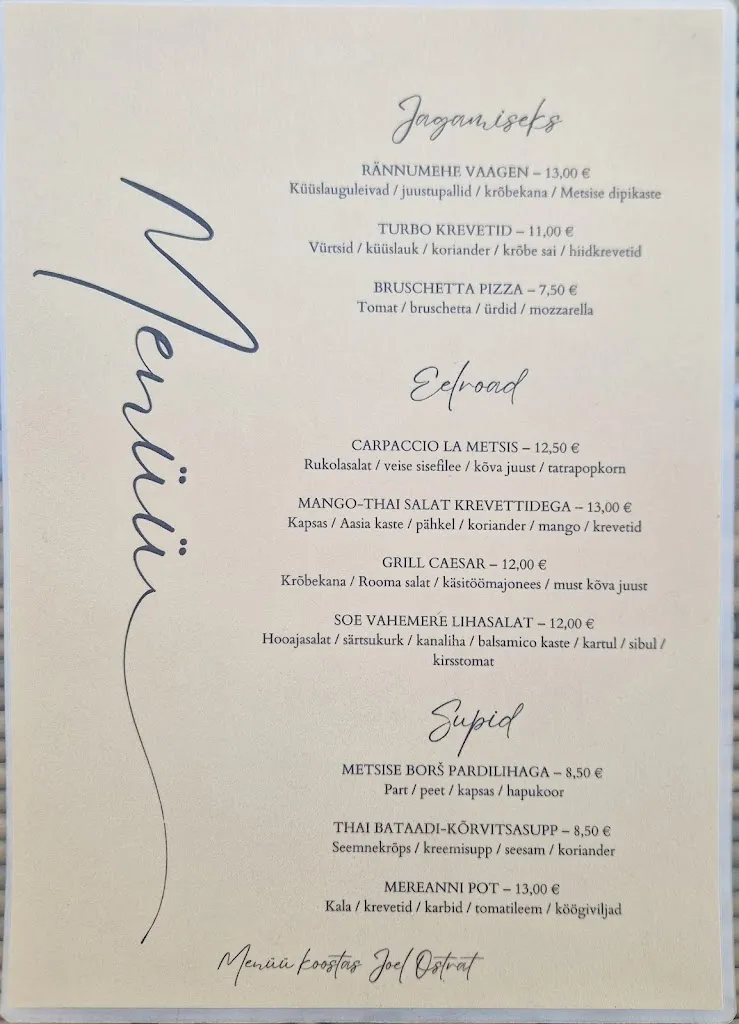 Menüü
Jagamiseks
RÄNNUMEHE VAAGEN – 13,00 €
Küüslauguleivad / juustupallid / krõbekana / Metsise dipikaste
TURBO KREVETID – 11,00 €
Vürtsid / küüslauk / koriander / krõbe sai / hiidkrevetid
BRUSCHETTA PIZZA – 7,50 €
Tomat / bruschetta / ürdid / mozzarella
Eelroad
CARPACCIO LA METSIS – 12,50 €
Rukolasalat / veise sisefilee / kõva juust / tatrapopkorn
MANGO-THAI SALAT KREVETTIDEGA – 13,00 €
Kapsas / Aasia kaste / pähkel / koriander / mango / krevetid
GRILL CAESAR – 12,00 €
Krõbekana / Rooma salat / käsitöömajonees / must kõva juust
SOE VAHEMERE LIHASALAT – 12,00 €
Hooajasalat / särtsukurk / kanaliha / balsamico kaste / kartul / sibul /
kirsstomat
Supid
METSISE BORŠ PARDILIHAGA – 8,50 €
Part / peet / kapsas / hapukoor
THAI BATAADI-KÕRVITSASUPP – 8,50 €
Seemnekrõps / kreemisupp / seesam / koriander
MEREANNI POT – 13,00 €
Kala / krevetid / karbid / tomatileem / köögiviljad
Menüü koostas Joel Ostrat